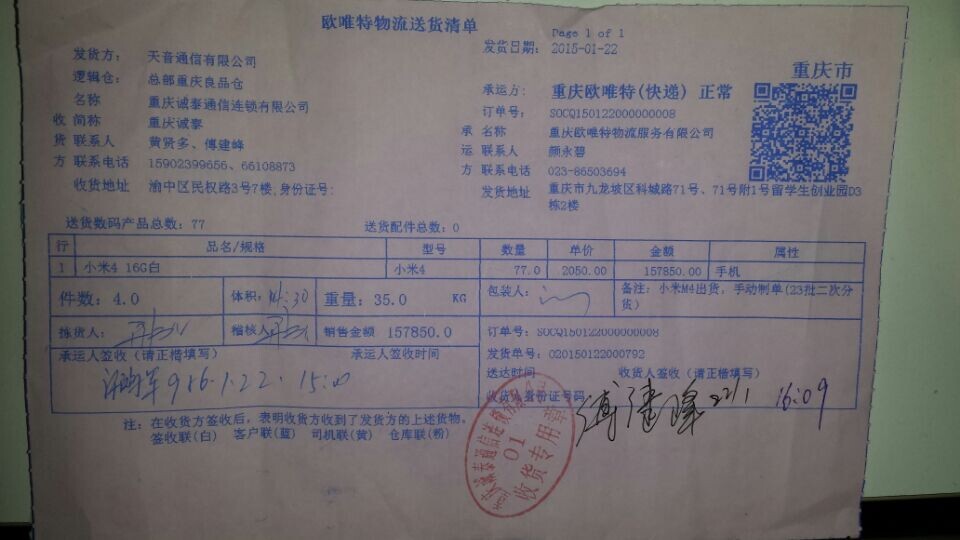 欧唯特物流送货清单
Page 1 of 1
发货日期: 2015-01-22
发货方: 天音通信有限公司
逻辑仓: 总部重庆良品仓
重庆市
承运方: 重庆欧唯特(快递) 正常
名称 重庆诚泰通信连锁有限公司
订单号: SOCQ150122000000008
收 简称 重庆诚泰
承 名称 重庆欧唯特物流服务有限公司
货 联系人 黄贤多、傅建峰
运 联系人 颜永碧
方 联系电话 15902399656、66108873
方 联系电话 023-86503694
收货地址 渝中区民权路3号7楼,身份证号:
发货地址 重庆市九龙坡区科城路71号、71号附1号留学生创业园D3栋2楼
送货数码产品总数: 77 送货配件总数: 0
行 品名/规格 型号 数量 单价 金额 属性
1 小米4 16G白 小米4 77.0 2050.00 157850.00 手机
件数: 4.0 体积: 14:30 重量: 35.0 KG 包装人: 备注: 小米M4出货, 手动制单(23批二次分货)
拣货人: 稽核人 销售金额 157850.0
订单号: SOCQ150122000000008
发货单号: 020150122000792
承运人签收(请正楷填写) 承运人签收时间
送达时间 收货人签收(请正楷填写)
1.22. 15:00
收货人身份证号码
傅建峰 22/1 16:09
注: 在收货方签收后, 表明收货方收到了发货方的上述货物。
签收联(白) 客户联(蓝) 司机联(黄) 仓库联(粉)
01
收货专用章